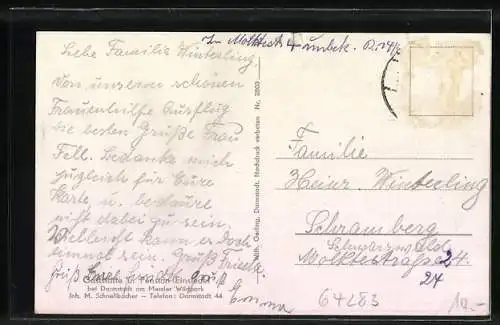 Liebe Familie Winterling.
Von unserem schönen
Frauenhilfe Ausflug
die besten Grüße Frau
Fell. Bedanke mich
zugleich für Eure
Karte u. bedaure
nicht dabei zu sein.
Vielleicht kann er doch
einmal sein. Gruß
Gruß Gruß
Emma
Gaststätte u. Pension Einsiedel
bei Darmstadt am Messler Wildpark
Inh. M. Schnellbächer – Telefon: Darmstadt 44
Gerling, Darmstadt. Nachdruck verboten Nr. 2803
In Moltkestr 4 unbek.
Familie
Heinr. Winterling
Schramberg
Schwarzwald
Moltkestraße 24.
24
64283
10.-